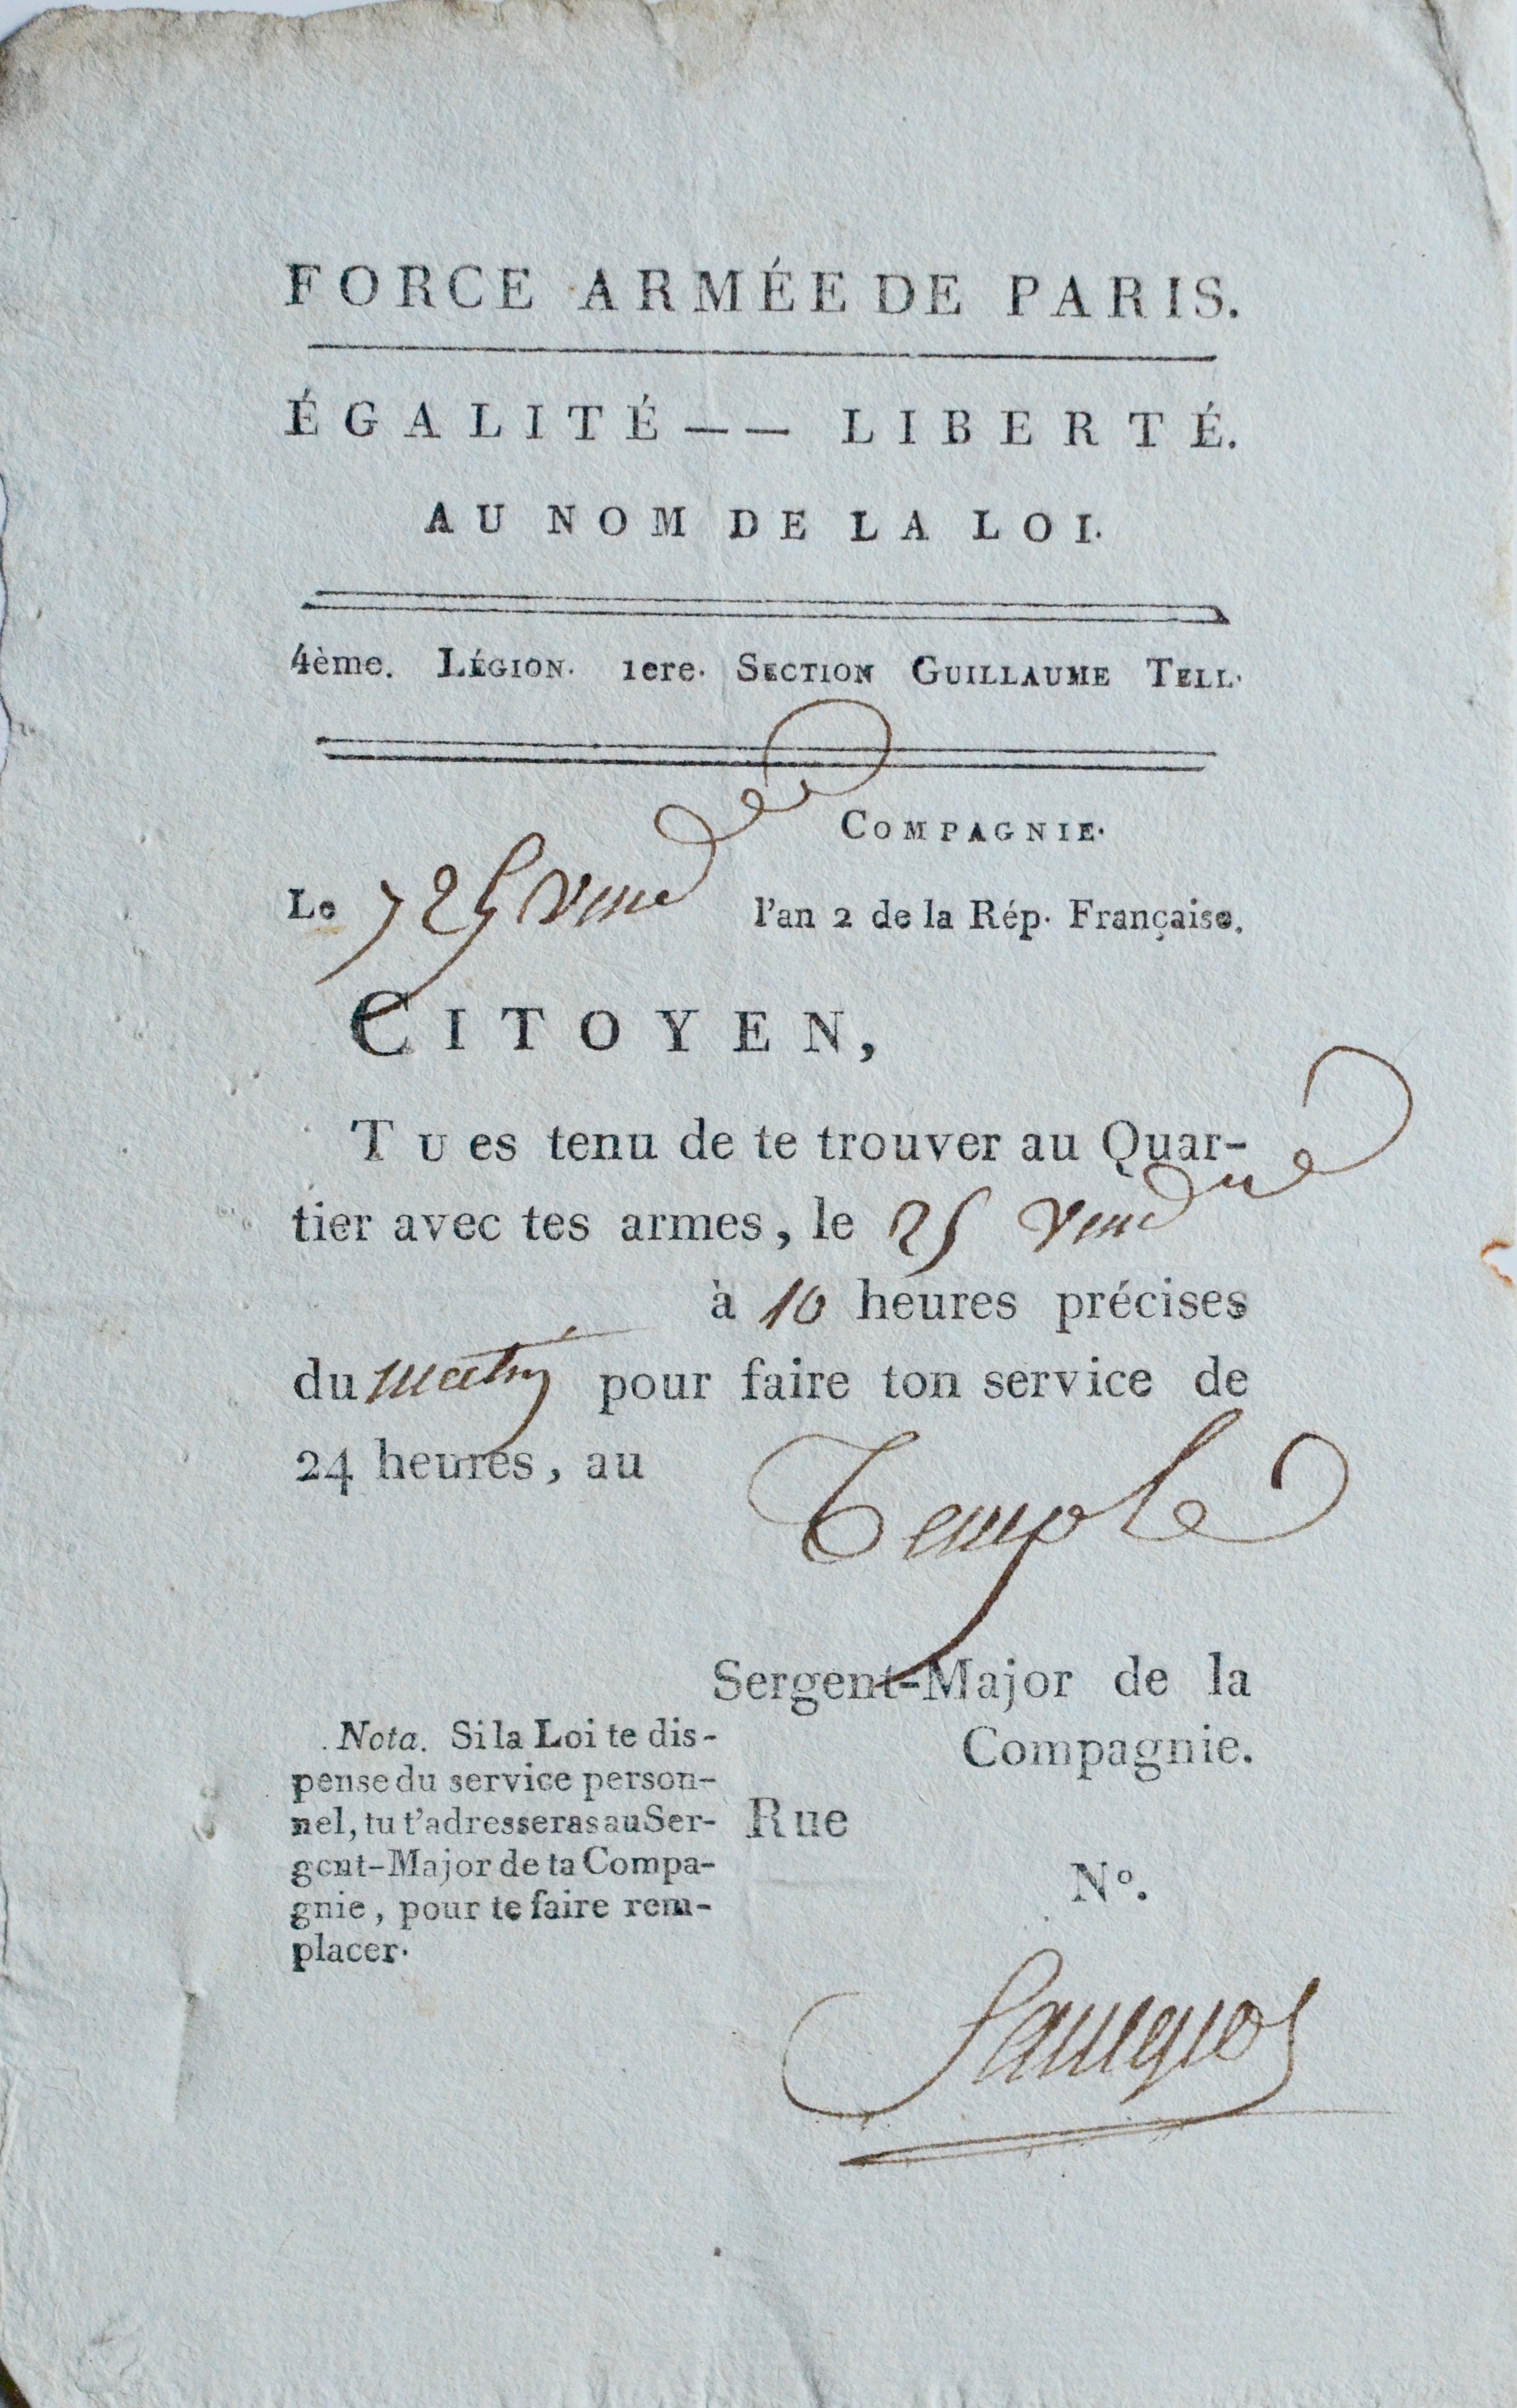 FORCE ARMÉE DE PARIS.
ÉGALITÉ —— LIBERTÉ.
AU NOM DE LA LOI.
4ème. LÉGION. 1ere. SECTION GUILLAUME TELL.
COMPAGNIE.
Le 25 l'an 2 de la Rép. Française.
CITOYEN,
TU es tenu de te trouver au Quar-
tier avec tes armes, le 25
à 10 heures précises
du matin pour faire ton service de
24 heures, au Temple
Sergent-Major de la
Compagnie.
Rue
N°.
Nota. Si la Loi te dis-
pense du service person-
nel, tu t'adresseras au Ser-
gent-Major de ta Compa-
gnie, pour te faire rem-
placer.